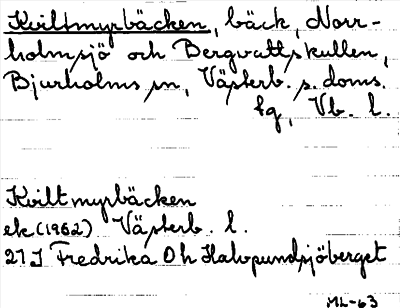 Kviltmyrbäcken, bäck, Norr-
holmsjö och Bergvattskullen,
Bjurholms sn, Västerb. s. doms.
tg, Vb. l.
Kviltmyrbäcken
ek(1962) Västerb. l.
21 J Fredrika 0 h Halvpundsjöberget
ML-63